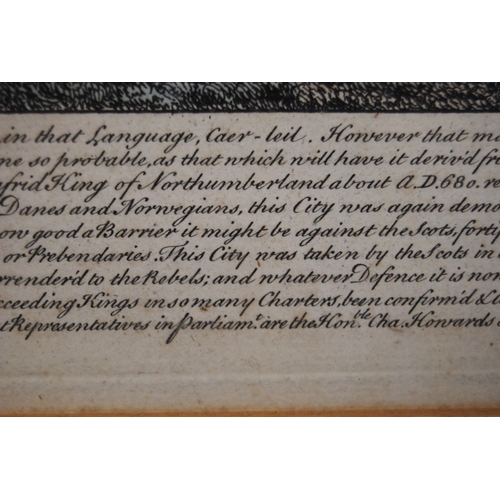 in that Language, Caer-leil. However that ma
ne so probable, as that which will have it deriv'd fr
frid King of Northumberland about A.D. 680. re
Danes and Norwegians, this City was again demo
ow good a Barrier it might be against the Scots, forty
or Prebendaries. This City was taken by the Scots in
rrender'd to the Rebels; and whatever Defence it is non
cceeding Kings in so many Charters, been confirm'd &
t Representatives in Parliamt. are the Honble. Cha. Howards